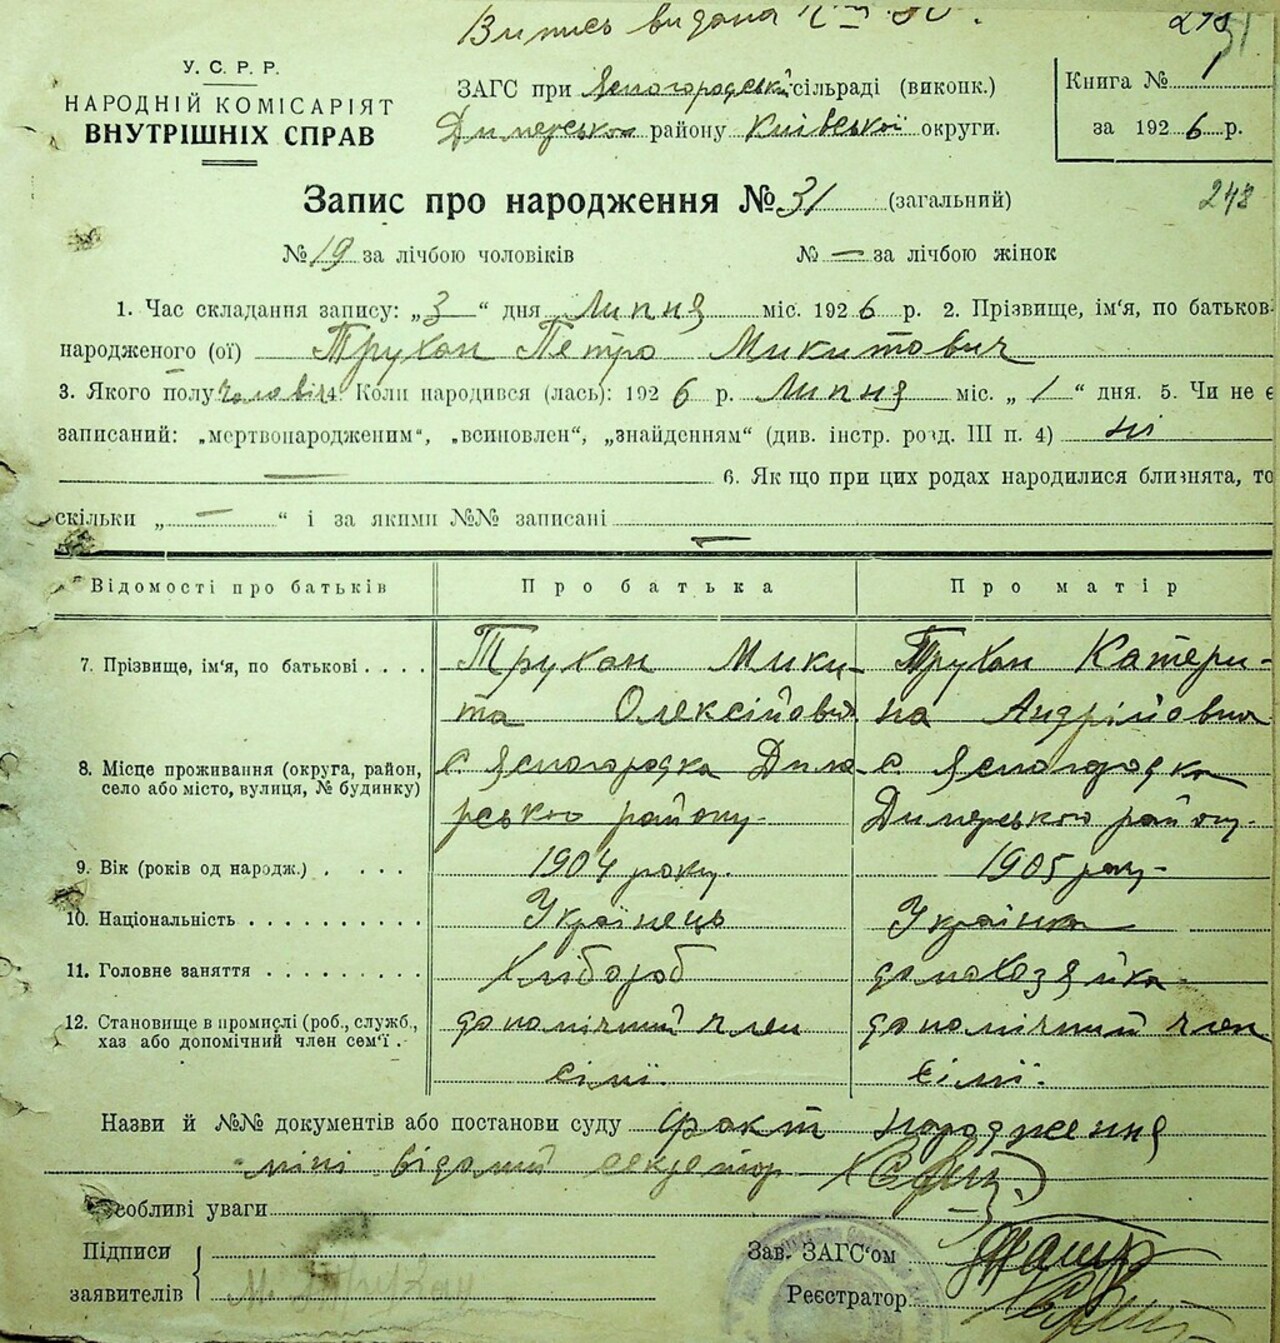 Випись видана
У. С. Р. Р.
НАРОДНІЙ КОМІСАРІЯТ
ВНУТРІШНІХ СПРАВ
ЗАГС при Ясногородській сільраді (виконк.)
Димерського району Київської округи.
Книга № 1
за 1926 р.
Запис про народження № 31 (загальний)
248
№ 19 за лічбою чоловіків № — за лічбою жінок
1. Час складання запису: „3“ дня Липня міс. 1926 р. 2. Прізвище, ім'я, по батьков
народженого (ої) Трухан Петро Микитович
3. Якого полу чоловіч 4. Коли народився (лась): 1926 р. Липня міс. „1“ дня. 5. Чи не є
записаний: „мертвонародженим“, „всиновлен“, „знайденням“ (див. інстр. розд. III п. 4) ні
— 6. Як що при цих родах народилися близнята, то
скільки „—“ і за якими №№ записані —
Відомості про батьків Про батька Про матір
7. Прізвище, ім'я, по батькові . . . . Трухан Мики- Трухан Катери-
та Олексійович на Андріїовна
8. Місце проживання (округа, район, с. Ясногородка Диме- с. Ясногородка
село або місто, вулиця, № будинку) рського району. Димерського району.
9. Вік (років од народж.) . . . . 1904 року. 1905 року
10. Національність . . . . . . . . . . Українець Українка
11. Головне заняття . . . . . . . . . Хлібороб домохозяйка
12. Становище в промислі (роб., служб., допомічний член допомічний член
хаз або допомічний член сем'ї . сімї. сімї.
Назви й №№ документів або постанови суду факт народження
міні відомий секретар
Особливі уваги
Підписи
заявителів М. Трухан
Зав. ЗАГС'ом
Реєстратор